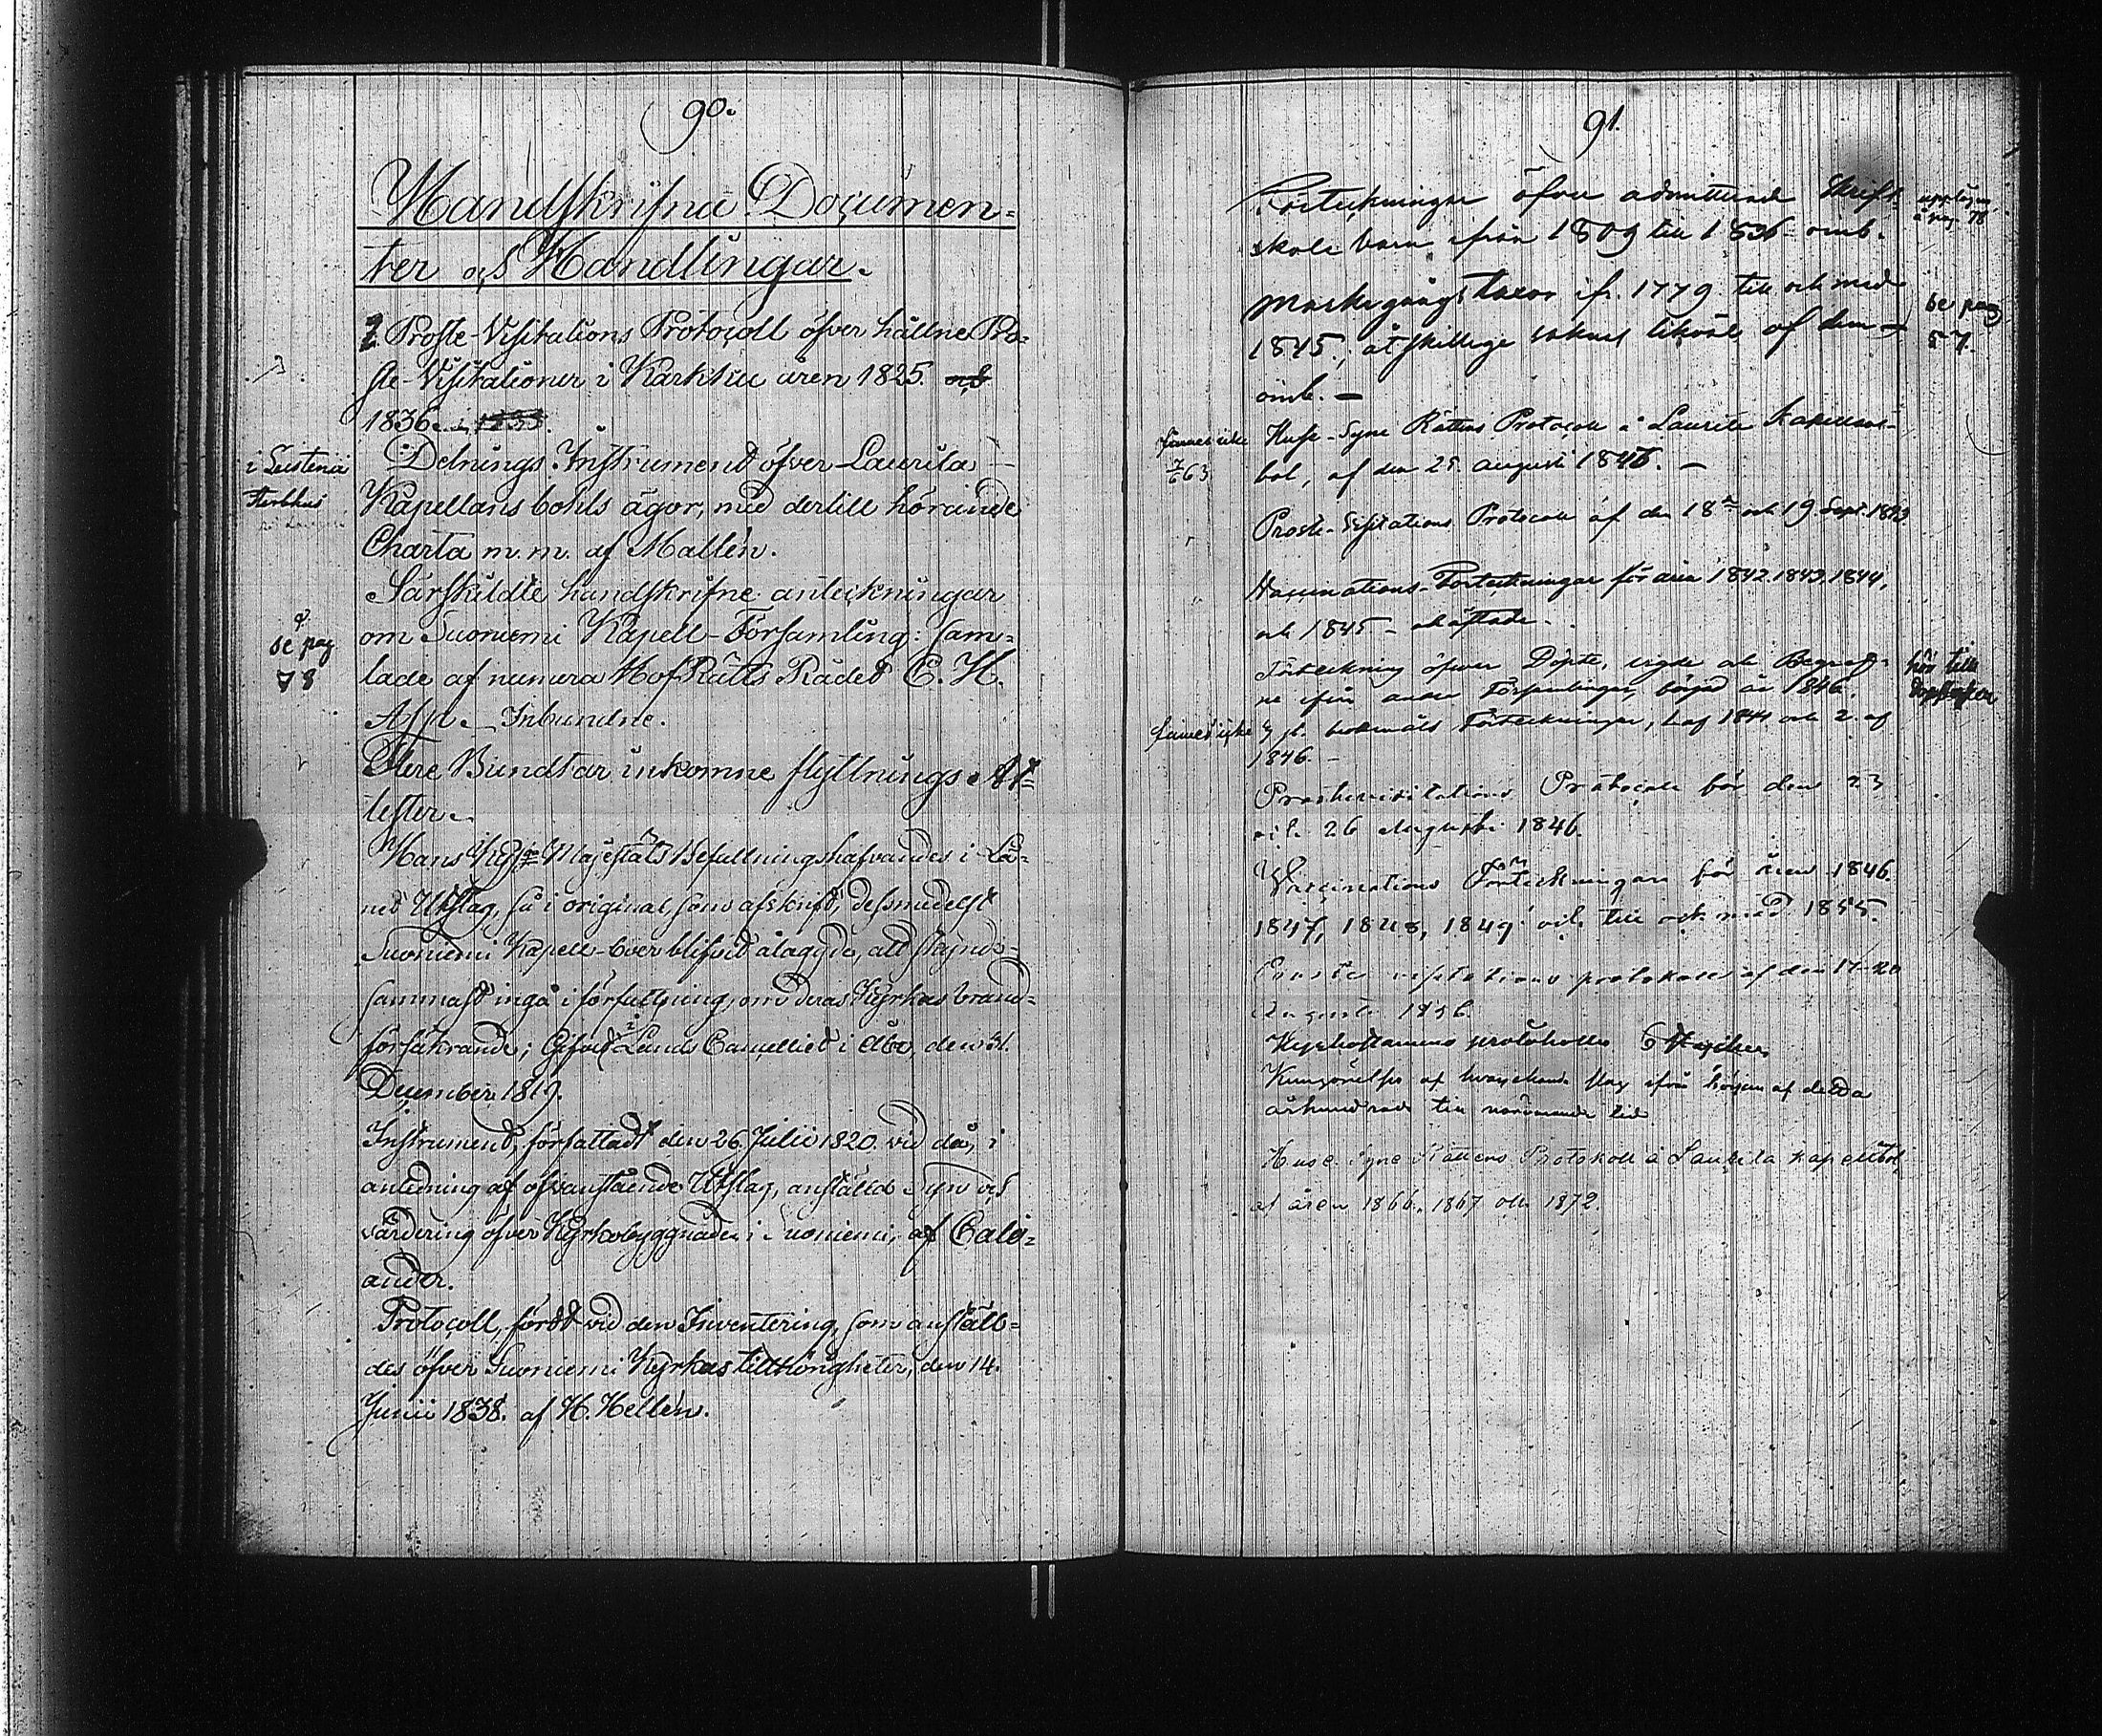 90.
Handskrifna Documen=
ter och Handlingar.
2 Proste-Visitations Protocoll öfver hållne Pro=
ste-Visitationer i Karkku åren 1825. och
1836.
i
Sterbhus
Delnings-Instrument öfver Laurila
Kapellans bohls ägor, med dertill hörande
Charta m. m. af Mallén.
Särskildte handskrifne anteckningar
om Suoniemi Kapell-Församling: sam=
se pag
78
lade af numera HofRätts Rådet C. H.
Asp. Inbundne.
Flere Bundtar inkomne flyttnings At=
tester.
Hans Kejs Majestäts Befallningshafvandes i Lä=
net Utslag, så i original som afskrift, dessmedelst
Suoniemi Kapell-boer blifvit ålagde, att skynd=
sammast ingå i författning, om deras Kyrkas brand=
försäkrande; Gifvet i Lands Cancelliet i Åbo, den 31.
December 1819.
Instrument, författadt den 26 Julii 1820. vid då, i
anledning af ofvanstående Utslag, anställd Syn och
värdering öfver Kyrkobyggnaden i Suoniemi, af Calo=
ander.
Protocoll, fördt vid den Inventering, som anställ=
des öfver Suoniemi Kyrkas tillhörigheter, den 14.
Junii 1838. af H. Hellén.
91.
Förteckningar öfver admitterade Skrift=
skole barn ifrån 1809 till 1836 - omb.
å pag. 78
Markegångs Taxor ifr. 1779 till och med
1845, åtskillige saknas likväl af dem -
omb. -
se pag
57.
finnes icke
7/63
Huse-Syne Rättens Protocoll å Laurila Kapellans-
bol, af den 25 augusti 1846. -
Proste-Visitations Protocoll af den 18de och 19 Sept. 1843
Vaccinations-Förteckningar för åren 1842. 1843. 1844,
och 1845 - ohäftade.
Förteckning öfver Döpte, vigde och Begraf-
ne ifrån andra Församlingar, börjad år 1846.
hör till
finnes icke
3 st. bokmåls Förteckningar, 1 af 1844 och 2 af
1846. -
Prostevisitations Protocoll för den 23
och 26 Augusti 1846.
Vaccinations Förteckningar för åren 1846.
1847, 1848, 1849 och till och med 1855.
visitations protokoll af den 17-20
Augusti 1856.
Kyrkostämmo protokoller
Kungörelser af hvarjehanda slag ifrån början af detta
århundrade till närvarande tid
Huse-Syne Rättens Protokoll å Laurila Kapellbol
af åren 1866, 1867 och 1872.